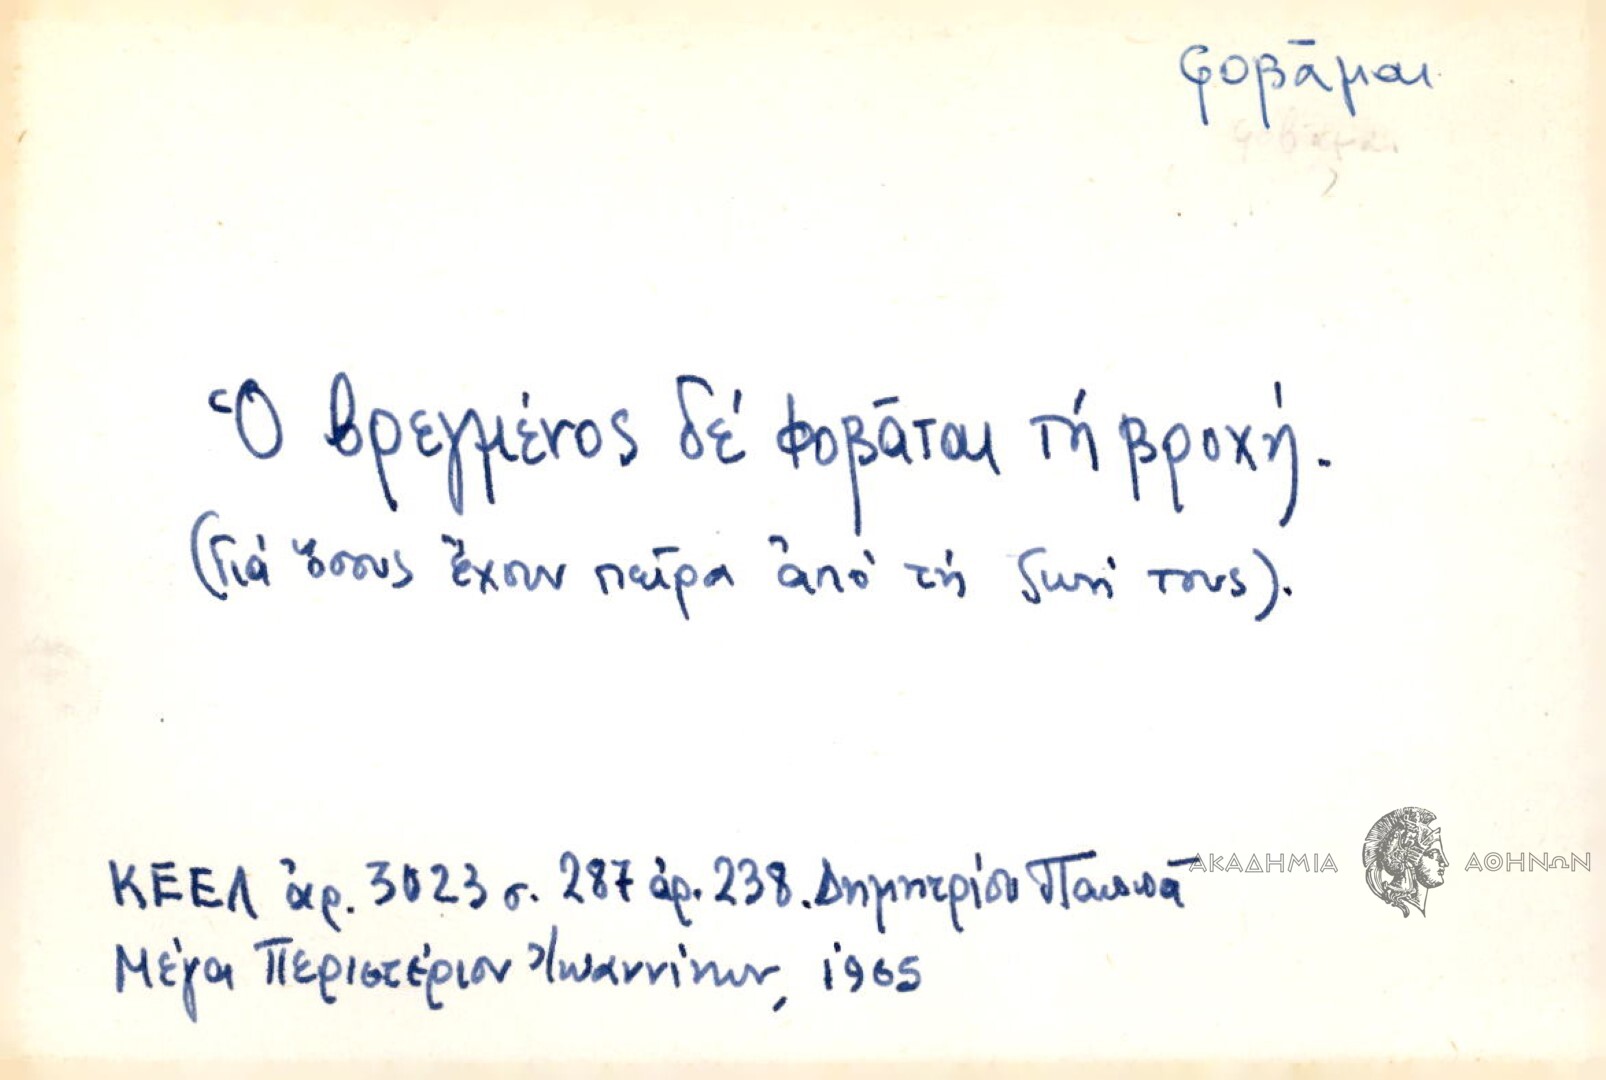 φοβᾶμαι
φοβᾶμαι
Ὁ βρεγμένος δέ φοβᾶται τή βροχή.
(Γιά ὅσους ἔχουν πεῖρα ἀπό τή ζωή τους).
ΚΕΕΛ ἀρ. 3023 σ. 287 ἀρ. 238. Δημητρίου Παππᾶ
Μέγα Περιστέριον Ἰωαννίνων, 1965
ΑΚΑΔΗΜΙΑ ΑΘΗΝΩΝ